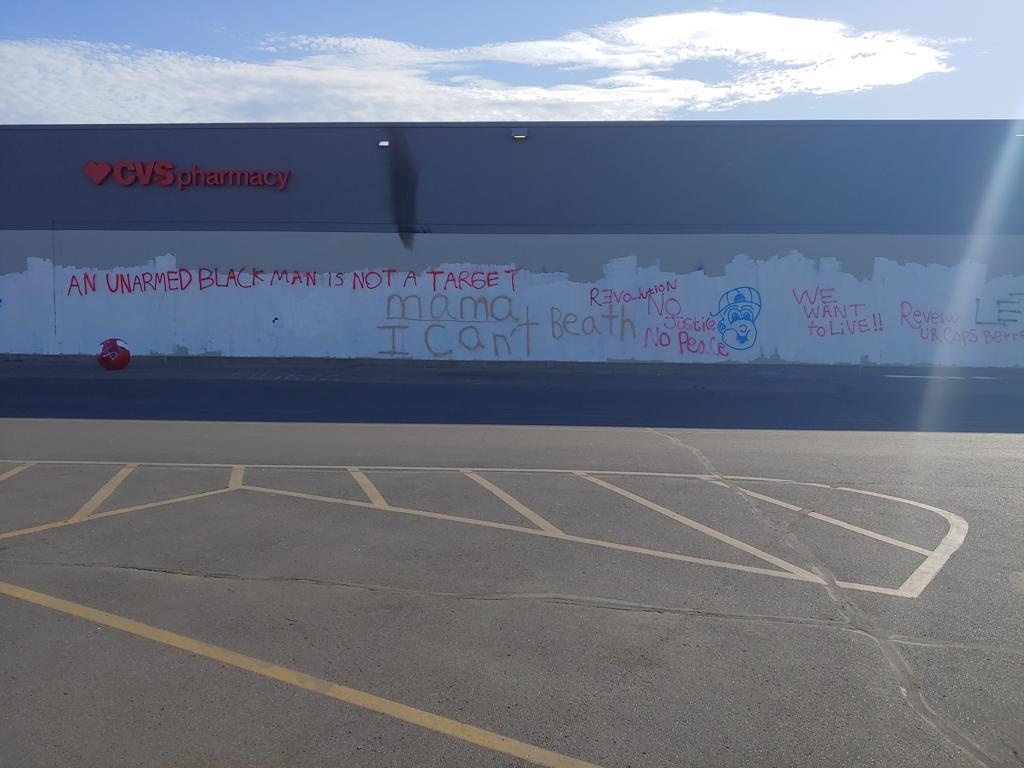 CVS pharmacy
AN UNARMED BLACK MAN IS NOT A TARGET
mama
I Can't Beath
REVOlutION
NO
Justice
No Peace
WE
WANT
to LIVE!!
UR COPS
LE